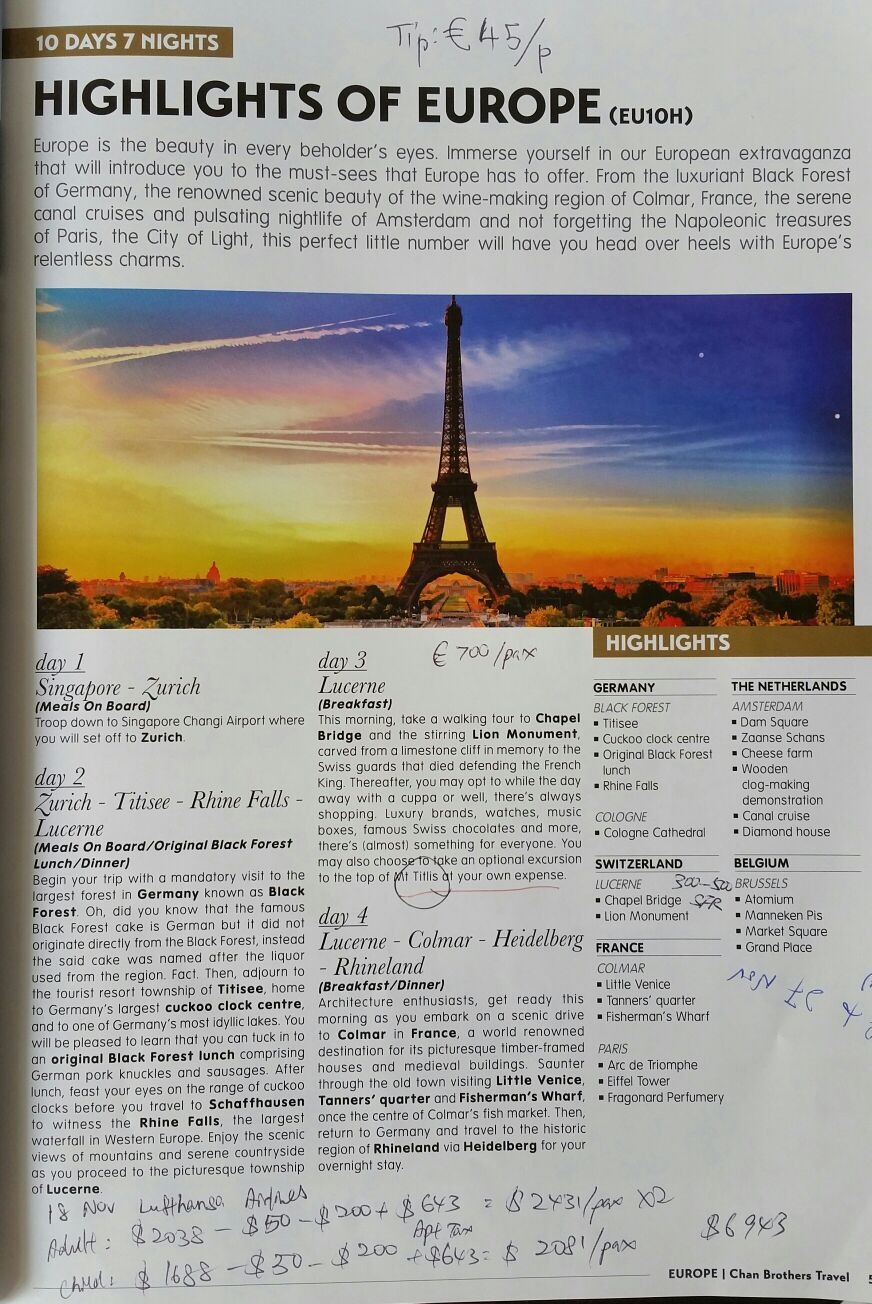 Tip: € 45/p
10 DAYS 7 NIGHTS
HIGHLIGHTS OF EUROPE (EU10H)
Europe is the beauty in every beholder's eyes. Immerse yourself in our European extravaganza
that will introduce you to the must-sees that Europe has to offer. From the luxuriant Black Forest
of Germany, the renowned scenic beauty of the wine-making region of Colmar, France, the serene
canal cruises and pulsating nightlife of Amsterdam and not forgetting the Napoleonic treasures
of Paris, the City of Light, this perfect little number will have you head over heels with Europe's
relentless charms.
day 1
Singapore - Zurich
(Meals On Board)
Troop down to Singapore Changi Airport where
you will set off to Zurich.
day 2
Zurich - Titisee - Rhine Falls -
Lucerne
(Meals On Board/Original Black Forest
Lunch/Dinner)
Begin your trip with a mandatory visit to the
largest forest in Germany known as Black
Forest. Oh, did you know that the famous
Black Forest cake is German but it did not
originate directly from the Black Forest, instead
the said cake was named after the liquor
used from the region. Fact. Then, adjourn to
the tourist resort township of Titisee, home
to Germany's largest cuckoo clock centre,
and to one of Germany's most idyllic lakes. You
will be pleased to learn that you can tuck in to
an original Black Forest lunch comprising
German pork knuckles and sausages. After
lunch, feast your eyes on the range of cuckoo
clocks before you travel to Schaffhausen
to witness the Rhine Falls, the largest
waterfall in Western Europe. Enjoy the scenic
views of mountains and serene countryside
as you proceed to the picturesque township
of Lucerne.
day 3
€ 700/pax
Lucerne
(Breakfast)
This morning, take a walking tour to Chapel
Bridge and the stirring Lion Monument,
carved from a limestone cliff in memory to the
Swiss guards that died defending the French
King. Thereafter, you may opt to while the day
away with a cuppa or well, there's always
shopping. Luxury brands, watches, music
boxes, famous Swiss chocolates and more,
there's (almost) something for everyone. You
may also choose to take an optional excursion
to the top of Mt Titlis at your own expense.
day 4
Lucerne - Colmar - Heidelberg
- Rhineland
(Breakfast/Dinner)
Architecture enthusiasts, get ready this
morning as you embark on a scenic drive
to Colmar in France, a world renowned
destination for its picturesque timber-framed
houses and medieval buildings. Saunter
through the old town visiting Little Venice,
Tanners' quarter and Fisherman's Wharf,
once the centre of Colmar's fish market. Then,
return to Germany and travel to the historic
region of Rhineland via Heidelberg for your
overnight stay.
HIGHLIGHTS
GERMANY
BLACK FOREST
▪ Titisee
▪ Cuckoo clock centre
▪ Original Black Forest
lunch
▪ Rhine Falls
COLOGNE
▪ Cologne Cathedral
SWITZERLAND
LUCERNE 300-500
▪ Chapel Bridge SFR
▪ Lion Monument
FRANCE
COLMAR
▪ Little Venice
▪ Tanners' quarter
▪ Fisherman's Wharf
PARIS
▪ Arc de Triomphe
▪ Eiffel Tower
▪ Fragonard Perfumery
THE NETHERLANDS
AMSTERDAM
▪ Dam Square
▪ Zaanse Schans
▪ Cheese farm
▪ Wooden
clog-making
demonstration
▪ Canal cruise
▪ Diamond house
BELGIUM
BRUSSELS
▪ Atomium
▪ Manneken Pis
▪ Market Square
▪ Grand Place
18 Nov Lufthansa Airlines
Adult: $2038 - $50 - $200 + $643 = $2431/pax X2
Apt Tax
$6943
Child: $1688 - $50 - $200 + $643 = $ 2081/pax
EUROPE | Chan Brothers Travel